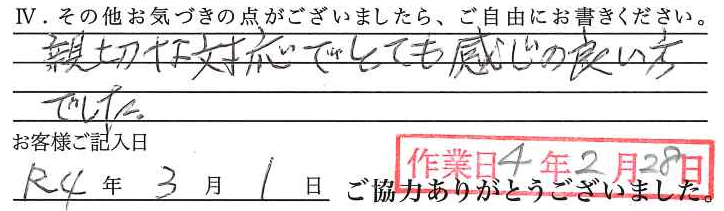 Ⅳ．その他お気づきの点がございましたら、ご自由にお書きください。
親切な対応でとても感じの良い方
でした。
お客様ご記入日
作業日4年2月28日
R4年3月1日 ご協力ありがとうございました。